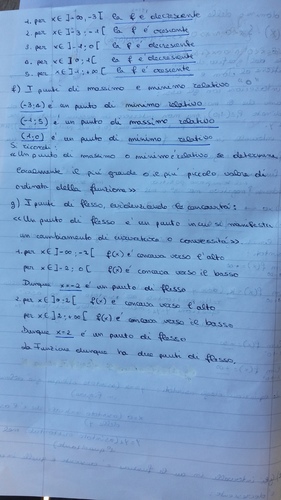 1. per x ∈ ]-∞, -3[ la f è decrescente
2. per x ∈ ]-3; -1[ la f è crescente
3. per x ∈ ]-1; 0[ la f è decrescente
4. per x ∈ ]0; 1[ la f è decrescente
5. per x ∈ ]1; +∞[ la f è crescente
f) I punti di massimo e minimo relativo
è un punto di minimo relativo
(-1; 5) è un punto di massimo relativo
(1,0) è un punto di minimo relativo
Si ricordi
«Un punto di massimo o minimo relativo se determina
localmente il più grande o il più piccolo valore di
ordinata della funzione»
g) I punti di flesso, evidenziando le concavità:
«Un punto di flesso è un punto in cui si manifesta
un cambiamento di curvatura o convessità».
1. per x ∈ ]-∞, -2[ f(x) è concava verso l'alto
per x ∈ ]-2; 0[ f(x) è concava verso il basso
Dunque x=-2 è un punto di flesso
2. per x ∈ ]0; 2[ f(x) è concava verso l'alto
per x ∈ ]2; +∞[ f(x) è concava verso il basso
Dunque x=2 è un punto di flesso
La Funzione dunque ha due punti di flesso.